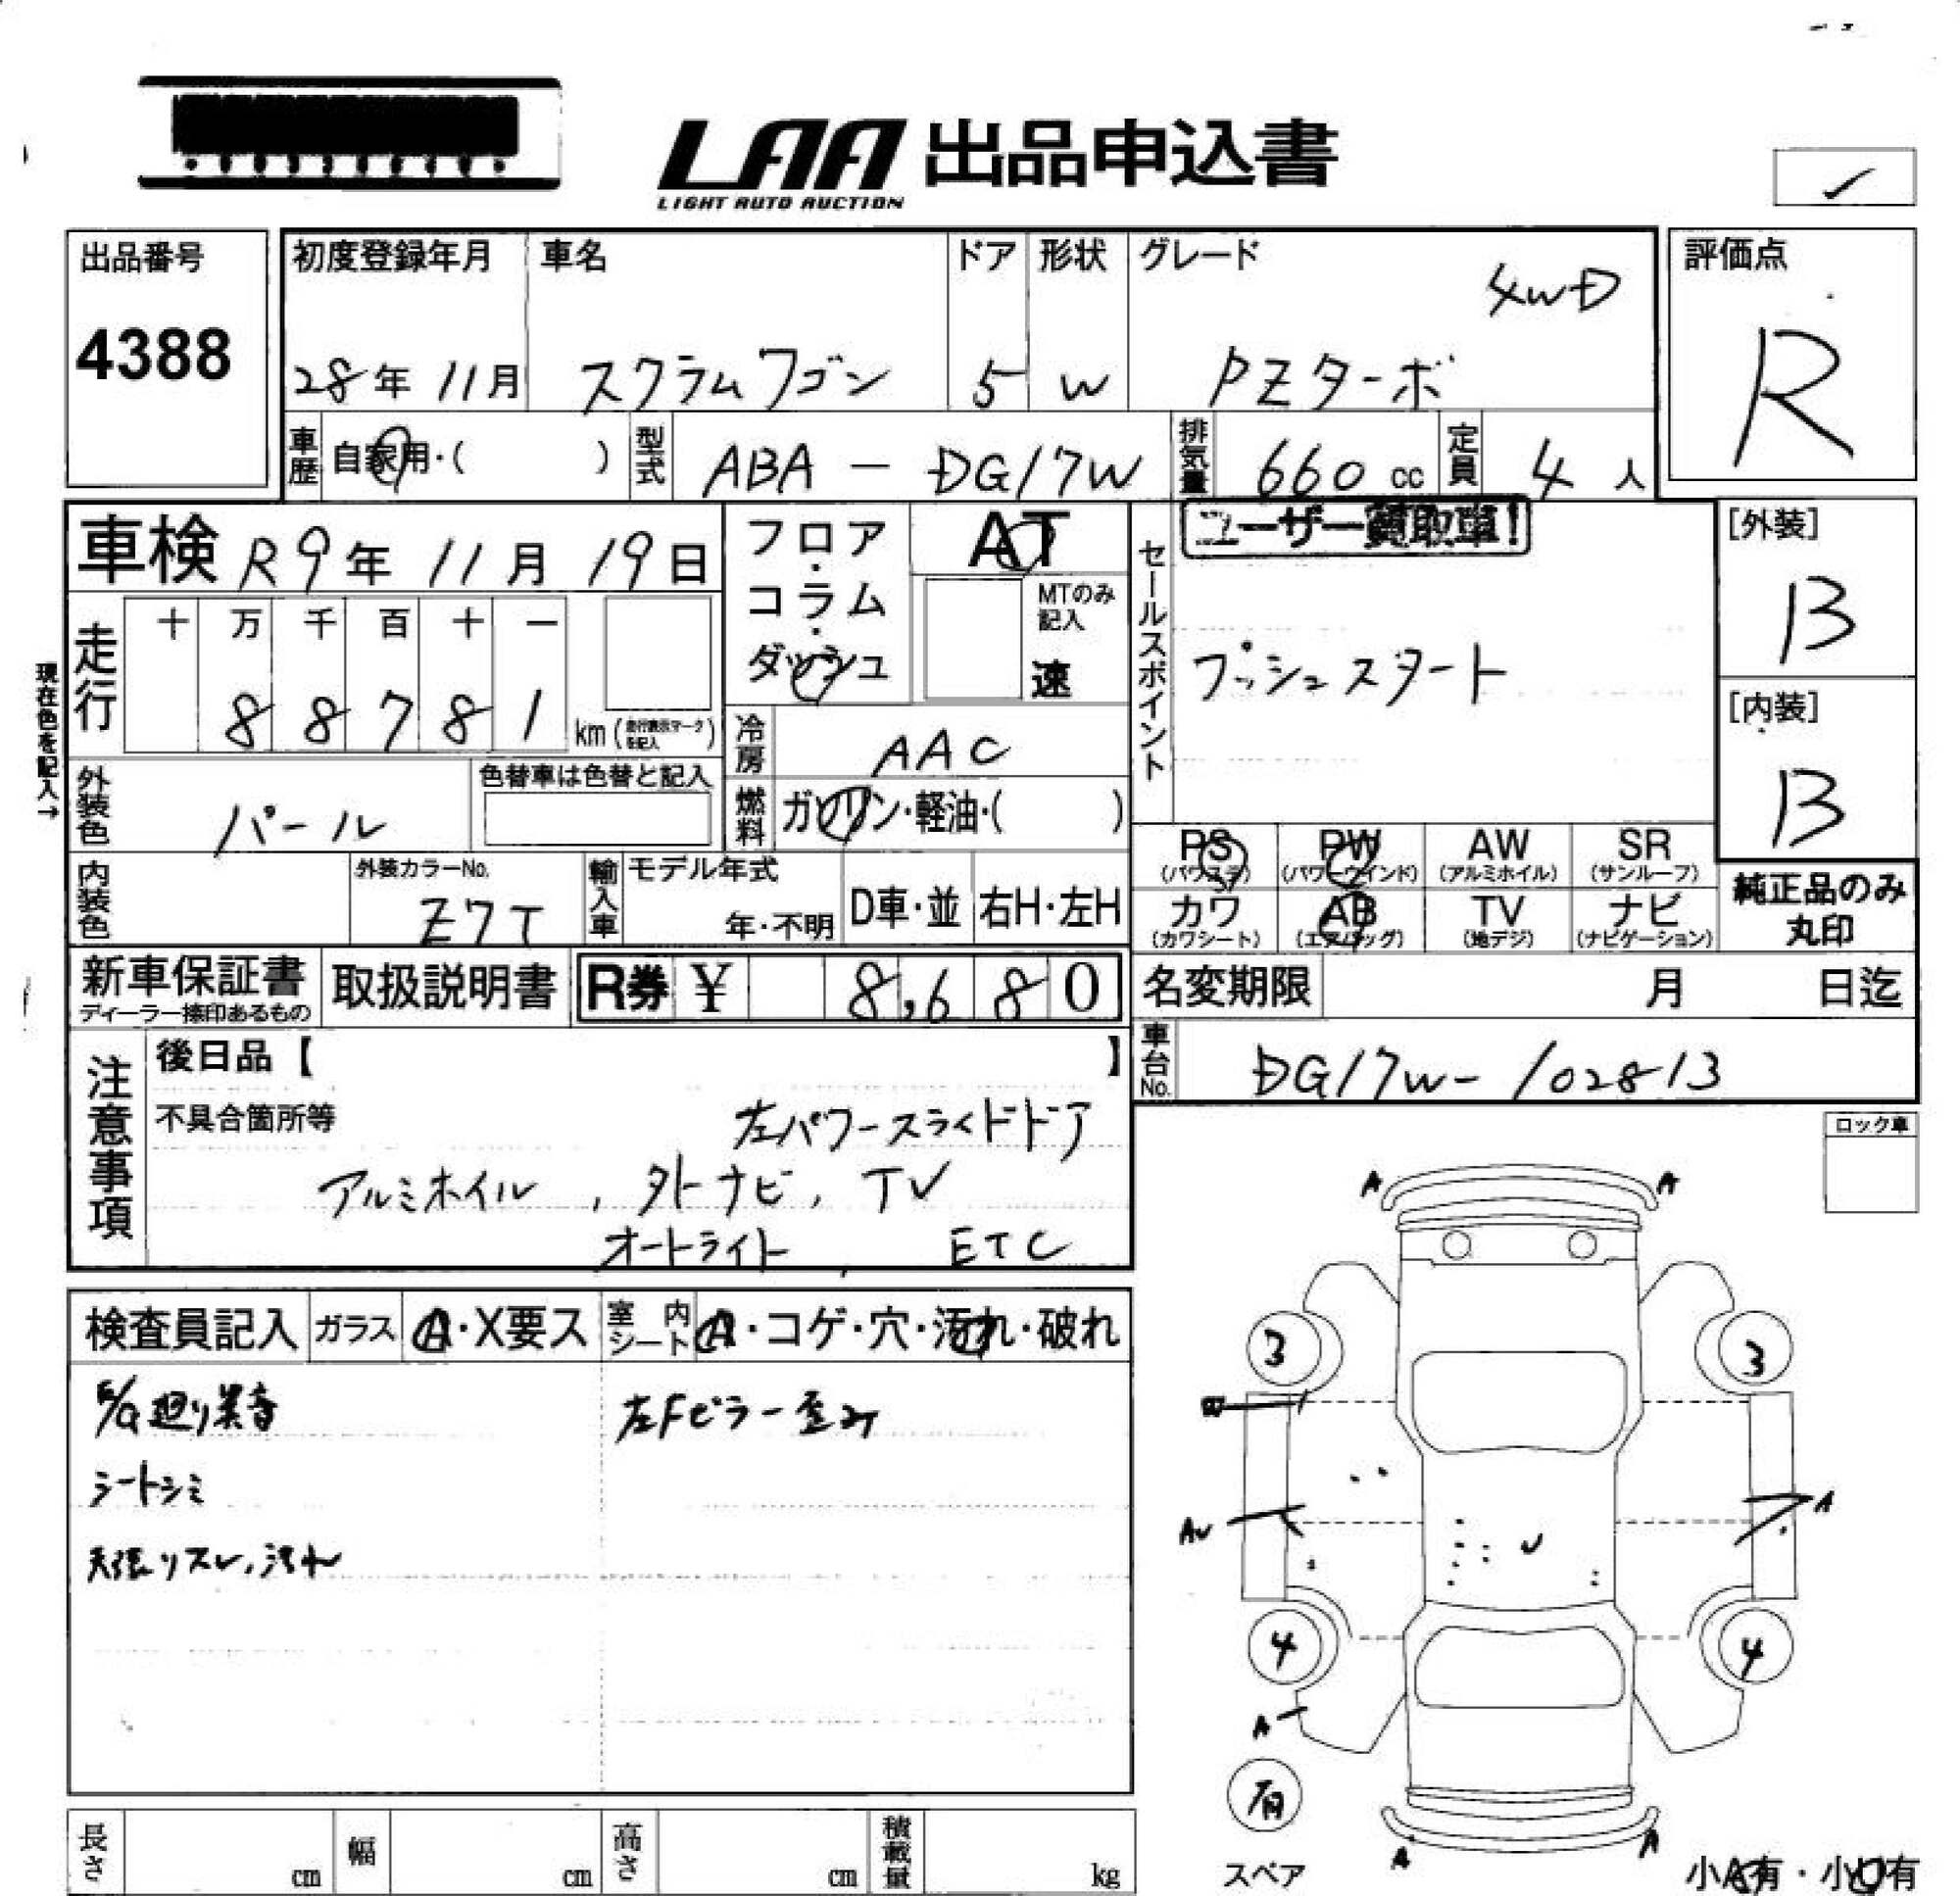 LAA 出品申込書
LIGHT AUTO AUCTION
出品番号
4388
初度登録年月
28年 11月
車名
スクラムワゴン
ドア
5
形状
W
グレード
4WD
PZターボ
評価点
R
車歴 自家用・( )
型式 ABA - DG17W
排気量 660 cc
定員 4 人
車検 R9年 11月 19日
フロア・コラム・ダッシュ
AT
MTのみ記入
速
走行
十 万 千 百 十 一
8 8 7 8 1 km (走行表示マークを記入)
現在色を記入→
冷房 AAC
外装色 パール
色替車は色替と記入
燃料 ガソリン・軽油・( )
内装色
外装カラーNo.
Z7T
輸入車 モデル年式
年・不明
D車・並 右H・左H
セールスポイント
ユーザー買取車!
プッシュスタート
[外装]
B
[内装]
B
PS (パワステ) PW (パワーウインド) AW (アルミホイル) SR (サンルーフ)
カワ (カワシート) AB (エアバッグ) TV (地デジ) ナビ (ナビゲーション)
純正品のみ丸印
新車保証書
ディーラー捺印あるもの
取扱説明書
R券 ¥ 8,680
名変期限 月 日迄
車台No. DG17W-102813
注意事項
後日品【 】
不具合箇所等
左パワースライドドア
アルミホイル , 外ナビ, TV
オートライト , ETC
ロック車
検査員記入 ガラス A・X要ス 室内シート A・コゲ・穴・汚れ・破れ
E/G廻り異音
シートシミ
天張リスレ,汚れ
左Fピラー歪み
A A
3 3
AU A
4 4
A
有
スペア
A A
小A有・小U有
長さ cm 幅 cm 高さ cm 積載量 kg